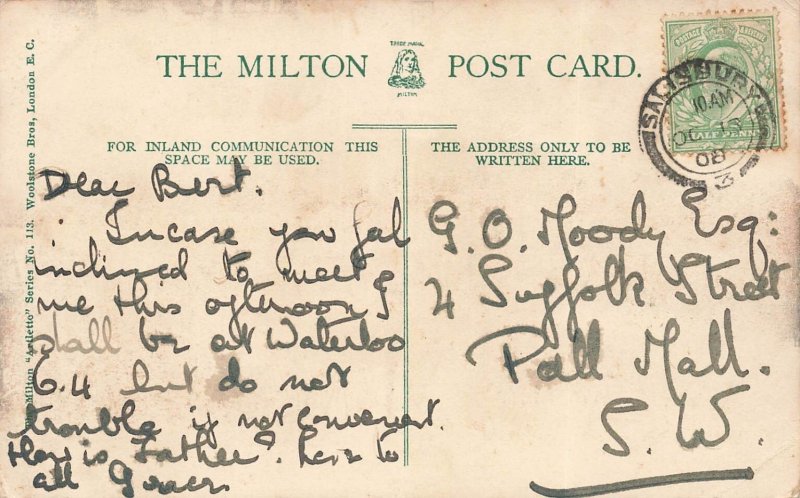 THE MILTON POST CARD.
TRADE MARK
MILTON
FOR INLAND COMMUNICATION THIS
SPACE MAY BE USED.
THE ADDRESS ONLY TO BE
WRITTEN HERE.
Milton "Artletto" Series No. 113. Woolstone Bros, London E. C.
POSTAGE
HALF PENNY
SALISBURY
10.AM
OC 13
08
3
Dear Bert.
Incase you fal
inclined to meet
me this afternoon I
shall be at Waterloo
6.4 but do not
trouble if not convenient.
How is Father? Love to
all Grace.
G. O. Moody Esq:
4 Suffolk Street
Pall Mall.
S. W.